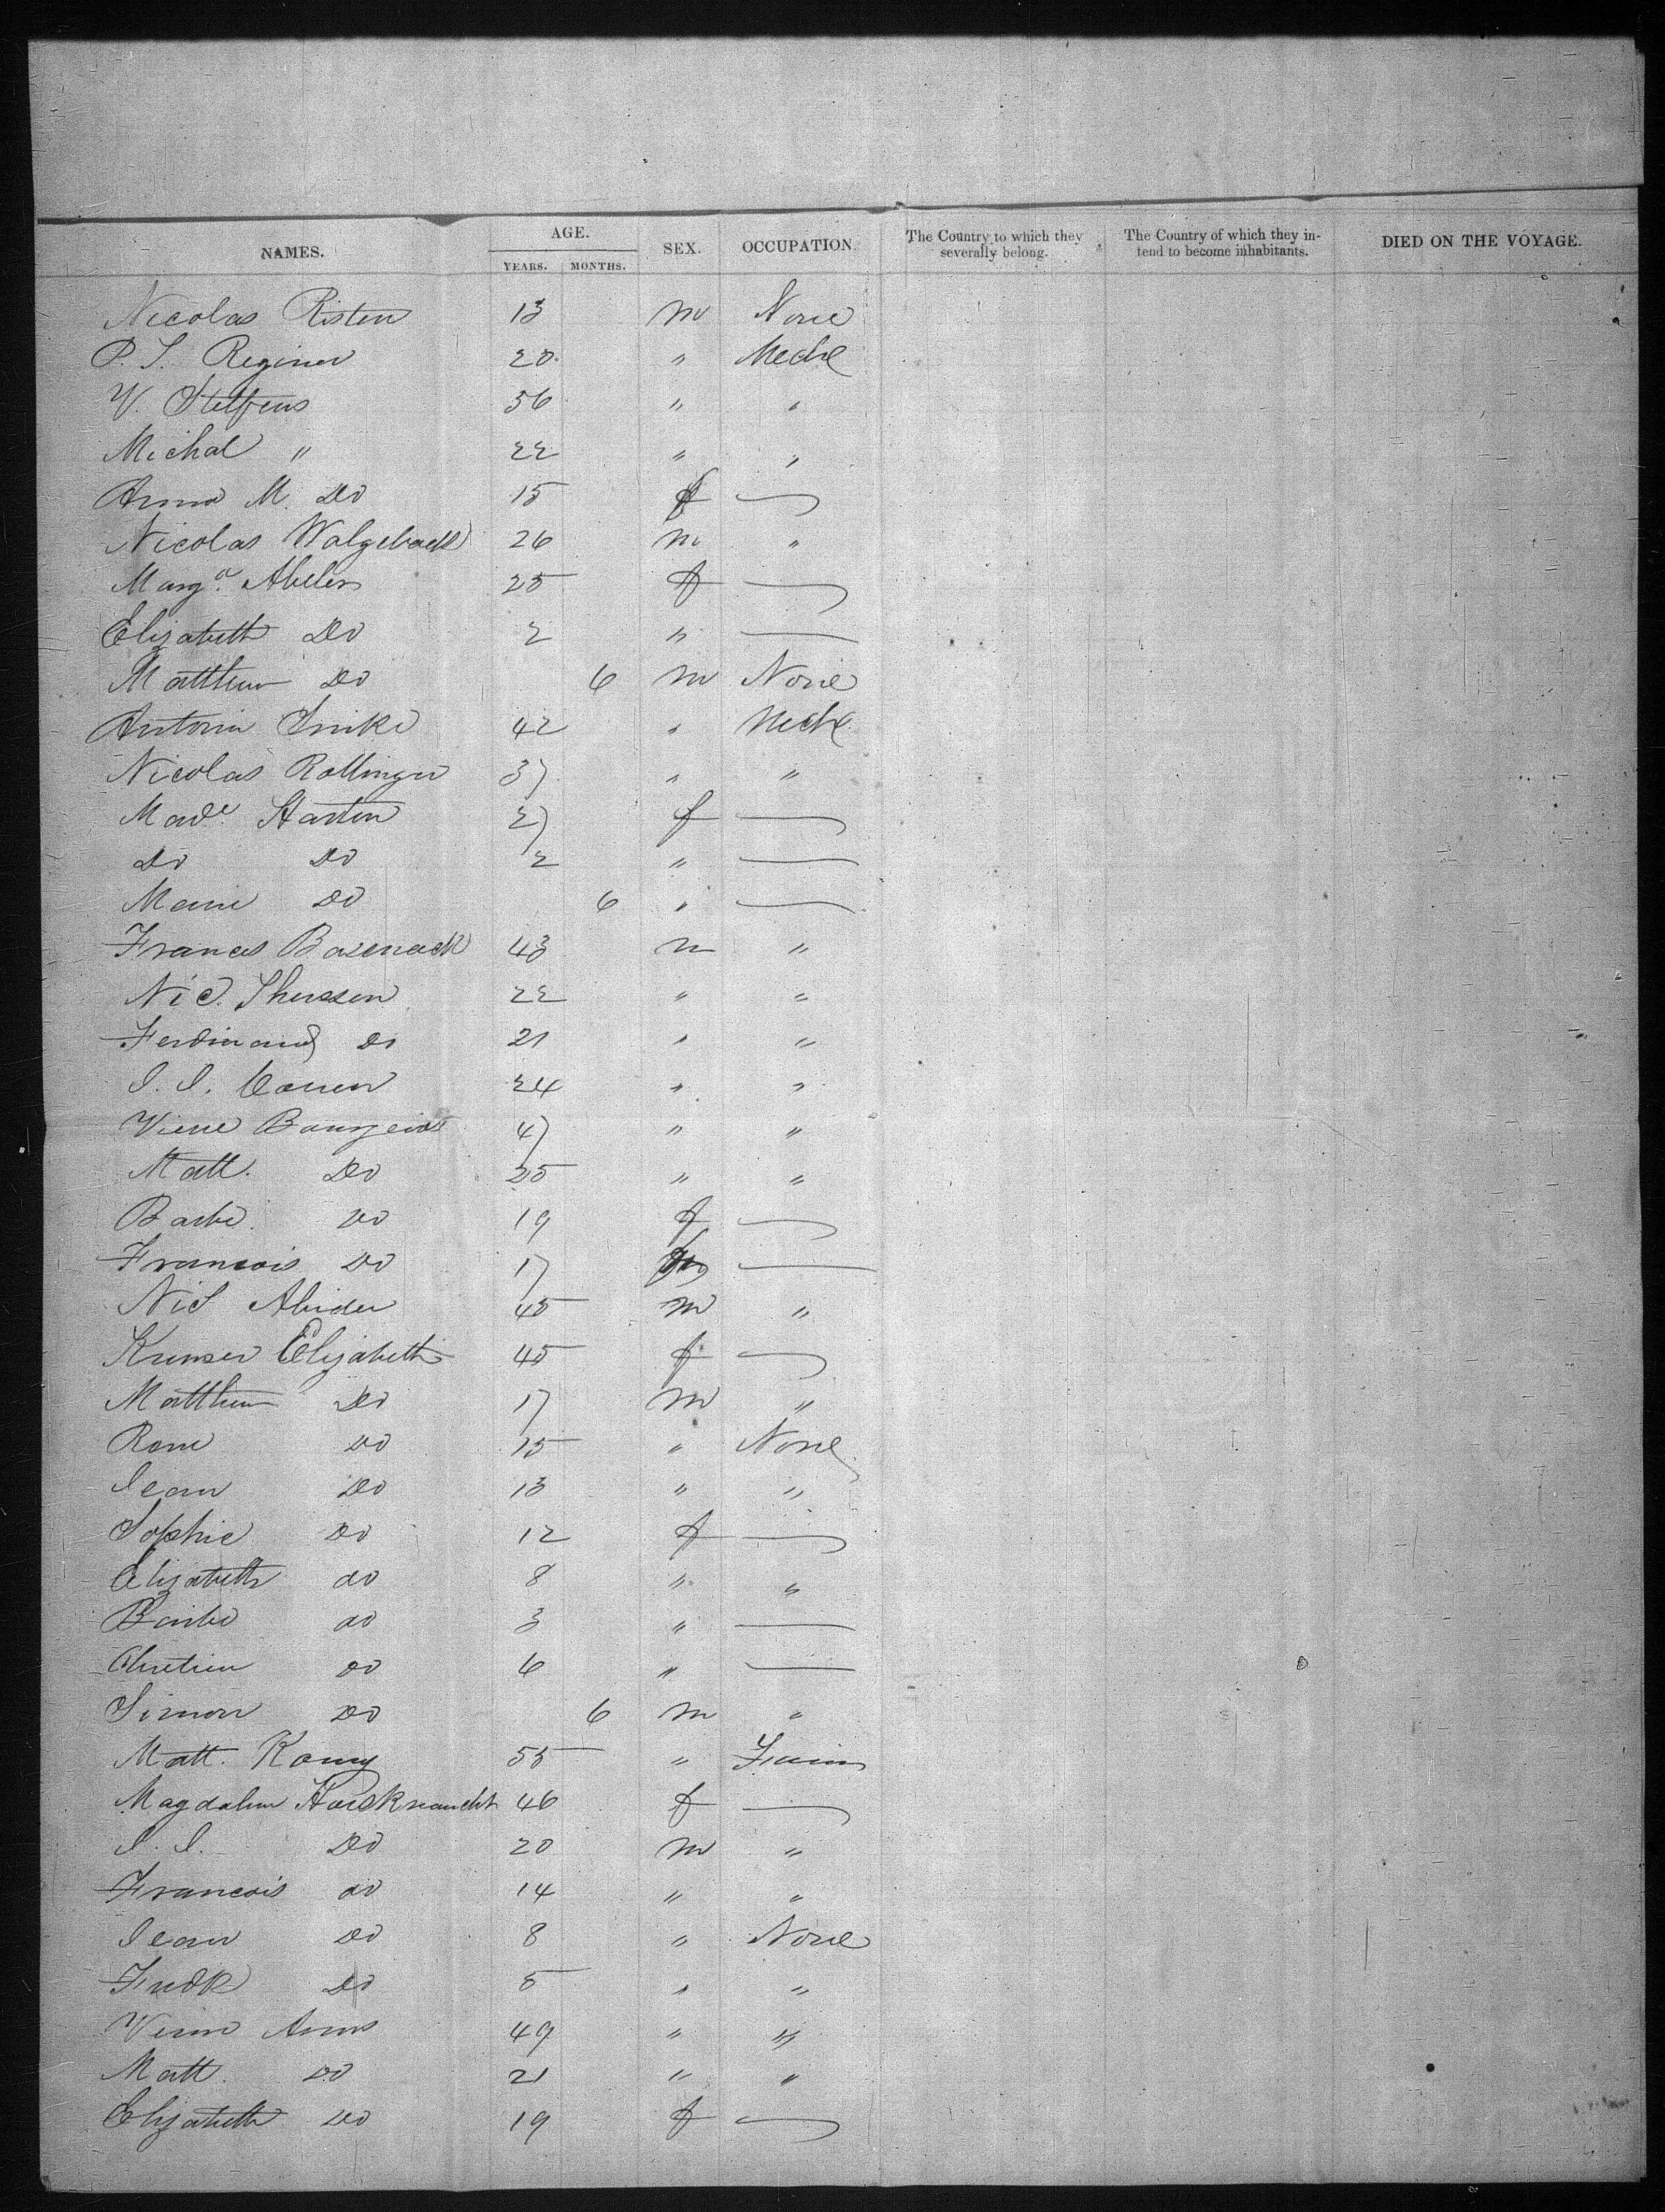 NAMES. AGE. YEARS. MONTHS. SEX. OCCUPATION. The Country to which they severally belong. The Country of which they intend to become inhabitants. DIED ON THE VOYAGE.
Nicolas Risten 13 m None
P. S. Reginer 20 " Mech
V. Steffens 56 " "
Michal " 22 " "
Anna M. Do 15 f —
Nicolas Walgeback 26 m "
Marg.a Abeler 25 f —
Elizabeth Do 2 " —
Matthew Do 6 m None
Antoin 42 " Mech
Nicolas Rollinger 37 " "
Made Harten 27 f —
Do Do 2 " —
Marie Do 6 " —
Frances Basenack 43 m "
Nic. Thussen 22 " "
Ferdinand Do 21 " "
24 " "
Bourgeois 47 " "
Matt. Do 25 " "
Barbe Do 19 f —
Francois Do 17 —
Nic 45 m "
Elizabeth 45 f —
Matthew Do 17 m "
Do 15 " None
Jean Do 13 " "
Sophie Do 12 f —
Elizabeth do 8 " "
Barbe do 3 " —
Do 6 " —
Simon Do 6 m "
Matt. 55 "
Magdalen 46 f —
J. J. Do 20 m "
Francois do 14 " "
Jean Do 8 " None
Fredk Do 5 " "
49 " "
Matt. Do 21 " "
Elizabeth Do 19 f —